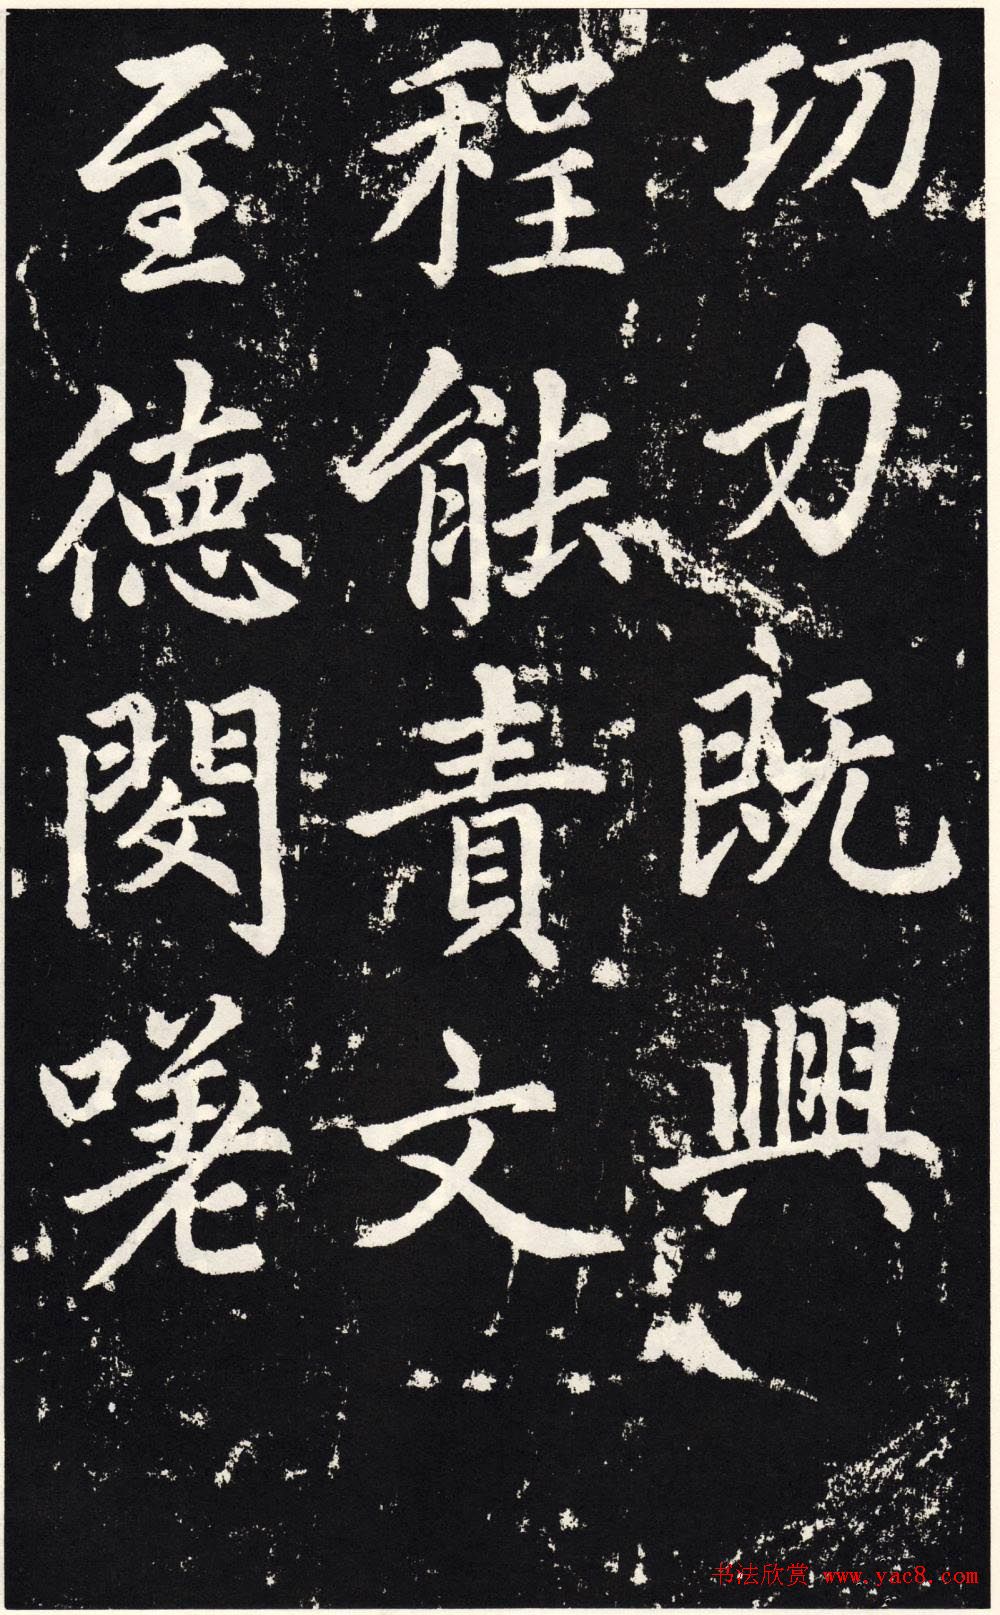 㓛力既興
程能責文
至德閔嗟
书法欣赏 www.yac8.com